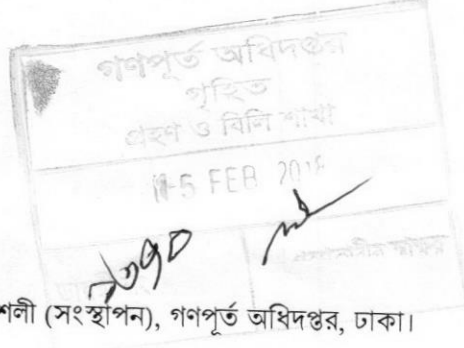 গণপূর্ত অধিদপ্তর
গৃহিত
গ্রহণ ও বিলি শাখা
5 FEB 2018
শলী (সংস্থাপন), গণপূর্ত অধিদপ্তর, ঢাকা।